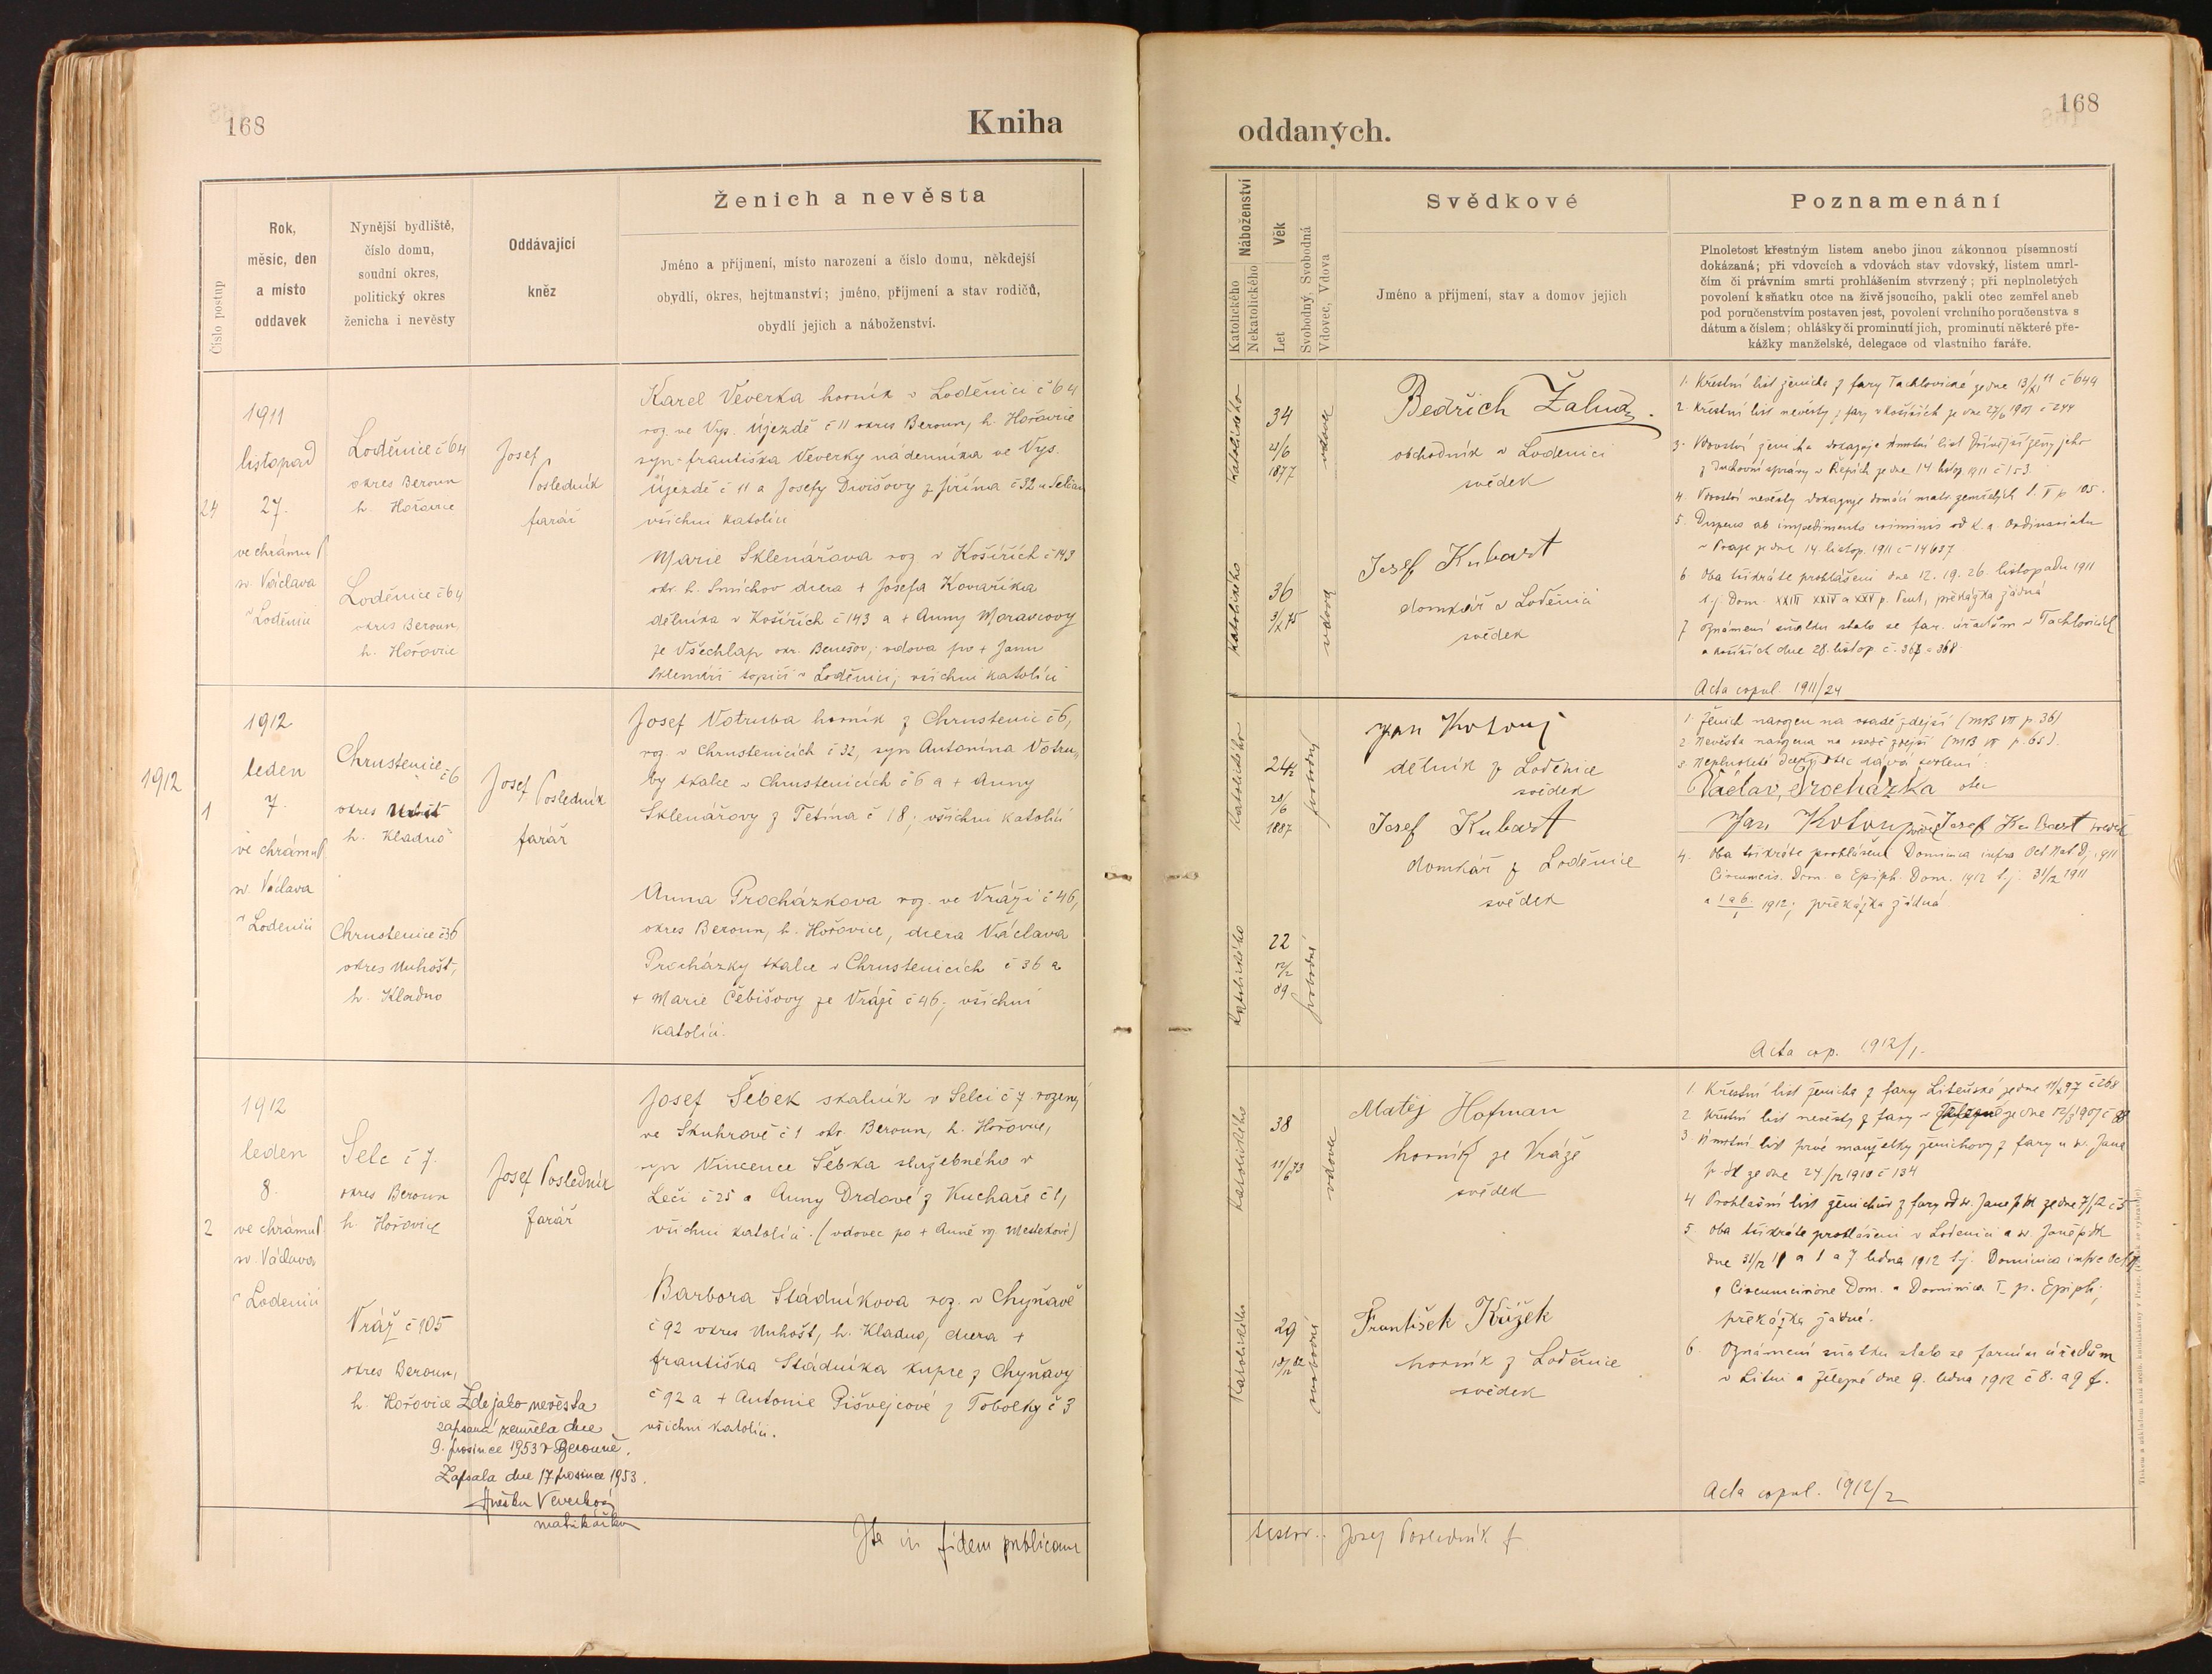 168
Kniha
Číslo postup
Rok,
měsíc, den
a místo
oddavek
Nynější bydliště,
číslo domu,
soudní okres,
politický okres
ženicha i nevěsty
Oddávající
kněz
Ženich a nevěsta
Jméno a příjmení, místo narození a číslo domu, někdejší
obydlí, okres, hejtmanství; jméno, příjmení a stav rodičů,
obydlí jejich a náboženství.
24
1911
listopad
27.
ve chrámu P.
sv. Václava
v Loděnici
Loděnice č 64
okres Beroun
h. Hořovice
Loděnice č 64
okres Beroun,
h. Hořovice
Josef
Posledník
farář
Karel Veverka horník v Loděnici č 64
roz. ve Vys. Újezdě č 11 okres Beroun, h. Hořovice
syn Františka Veverky nádenníka ve Vys.
Újezdě č 11 a Josefy Divišovy z Jiřína č 32
všichni katolíci
Marie Sklenářova roz v Košířích č 143
okr. h. Smíchov dcera + Josefa Kovaříka
dělníka v Košířích č 143 a + Anny Moravcovy
ze Všechlap okr. Benešov; vdova po + Janu
Sklenáři topiči v Loděnici; všichni katolíci
1912
1
1912
leden
7.
ve chrámu P.
sv. Václava
v Loděnici
Chrustenice č 6
okres
h. Kladno
Chrustenice č 36
okres Unhošt,
h. Kladno
Josef Posledník
farář
Josef Votruba horník z Chrustenic č 6,
roz. v Chrustenicích č 32, syn Antonína Votru„
by skalce v Chrustenicích č 6 a + Anny
Sklenářovy z Tetína č 18; všichni katolíci
Anna Procházkova roz. ve Vráži č 46,
okres Beroun, h. Hořovice, dcera Václava
Procházky skalce v Chrustenicích č 36 a
+ Marie Čebišovy ze Vráže č 46; všichni
katolíci.
2
1912
leden
8.
ve chrámu P.
sv. Václava
v Lodenici
Selc č 7.
okres Beroun
h. Hořovice
Vráž č 105
okres Beroun,
h. Hořovice
Zde jako nevěsta
zapsaná zemřela dne
9. prosince 1953 v Berouně.
Zapsala dne 17 prosince 1953.
Veverková
matrikářka
Josef Posledník
farář
Josef Šebek skalník v Selci č 7. rozený
ve Skuhrově č 1 okr. Beroun, h. Hořovice,
syn Vincence Šebka služebného v
Leči č 25 a Anny Drdové z Kuchaře č 1,
všichni katolíci. (vdovec po + Anně roz. Mestekové)
Barbora Sládníkova roz. v Chyňavě
č 92 okres Unhošt, h. Kladno, dcera +
Františka Sládníka kupce z Chyňavy
č 92 a + Antonie Pišvejcové z Tobolky č 3
všichni katolíci.
Ita in fidem publicam
168
oddaných.
Náboženství
Katolického
Nekatolického
Věk
Let
Svobodný, Svobodná
Vdovec, Vdova
Svědkové
Jméno a příjmení, stav a domov jejich
Poznamenání
Plnoletost křestným listem anebo jinou zákonnou písemností
dokázaná; při vdovcích a vdovách stav vdovský, listem umrl-
čím či právním smrti prohlášením stvrzený; při neplnoletých
povolení k sňatku otce na živě jsoucího, pakli otec zemřel aneb
pod poručenstvím postaven jest, povolení vrchního poručenstva s
dátum a číslem; ohlášky či prominutí jich, prominutí některé pře-
kážky manželské, delegace od vlastního faráře.
Katolického
34
21/6
1877
vdovec
Katolického
36
3/X 75
vdova
Bedřich Žaludy.
obchodník v Lodenici
svědek
Josef Kubast
domkář v Loděnici
svědek
1. Křestní list ženicha z fary Tachlovické ze dne 13/XI 11 č 649
2. Křestní list nevěsty z fary v Košířích ze dne 27/6 1901 č 244
3. Vdovství ženicha dokazuje úmrtní list dřívější ženy jeho
z duchovní správy v Řepích ze dne 14 listop 1911 č 153.
4. Vdovství nevěsty dokazuje domácí matr. zemřelých t. V p 105.
5. Dispens ab impedimento criminis od k. a. Ordinariatu
v Praze ze dne 14. listop. 1911 č 14637
6 Oba třikráte prohlášeni dne 12. 19. 26. listopadu 1911
t. j. Dom. XXIII XXIV a XXV p. Pent, překážka žádná
7 Oznámení sňatku stalo se far. úřadům v Tachlovicích
a Košířích dne 28. listop. č. 367 a 368.
Acta copul. 1911/24
Katolického
24½
28/6
1887
svobodný
Katolického
22
12/2
89
svobodná
Jan Kotouj
dělník z Loděnice
svědek
Josef Kubast
domkář z Loděnice
svědek
1. Ženich narozen na osadě zdejší (MB VII p. 36)
2 Nevěsta narozena na osadě zdejší (MB VII p. 65).
3 Neplnoleté dceři otec dává svolení:
Václav Procházka otec
Jan Kotouj svědek Josef Kubast svědek
4. Oba třikráte prohlášeni Dominica infra Oct Nat. D. 1911
Circumcis. Dom. a Epiph. Dom. 1912 t. j. 31/12 1911
a 1 a 6./1 1912; překážka žádná
Acta cop. 1912/1.
Katolického
38
11/6 73
vdovec
Katolického
29
svobodná
Matěj Hofman
horník ze Vráže
svědek
František Křížek
horník z Loděnice
svědek
1. Křestní list ženicha z fary Liteňské ze dne 11/2 97 č 268
2 Křestní list nevěsty z fary v Železné ze dne 12/3 1907 č 38
3 Úmrtní list prvé manželky ženichovy z fary u sv. Jana
p. Sk ze dne 27/12 1910 č 134
4 Prohlašní list ženichův z fary od sv. Jana p Sk ze dne 7/1 12 č 5
5. Oba třikráte prohlášeni v Loděnici a sv. Janě p Sk
dne 31/12 11 a 1 a 7 ledna 1912 t. j. Dominica infra Oct
Circumcisione Dom. a Dominica I p. Epiph;
překážka žádná.
6. Oznámení sňatku stalo se farním úřadům
v Litni a Železné dne 9. ledna 1912 č 8. a 9 f.
Acta copul. 1912/2
testor.. Josef Posledník f.